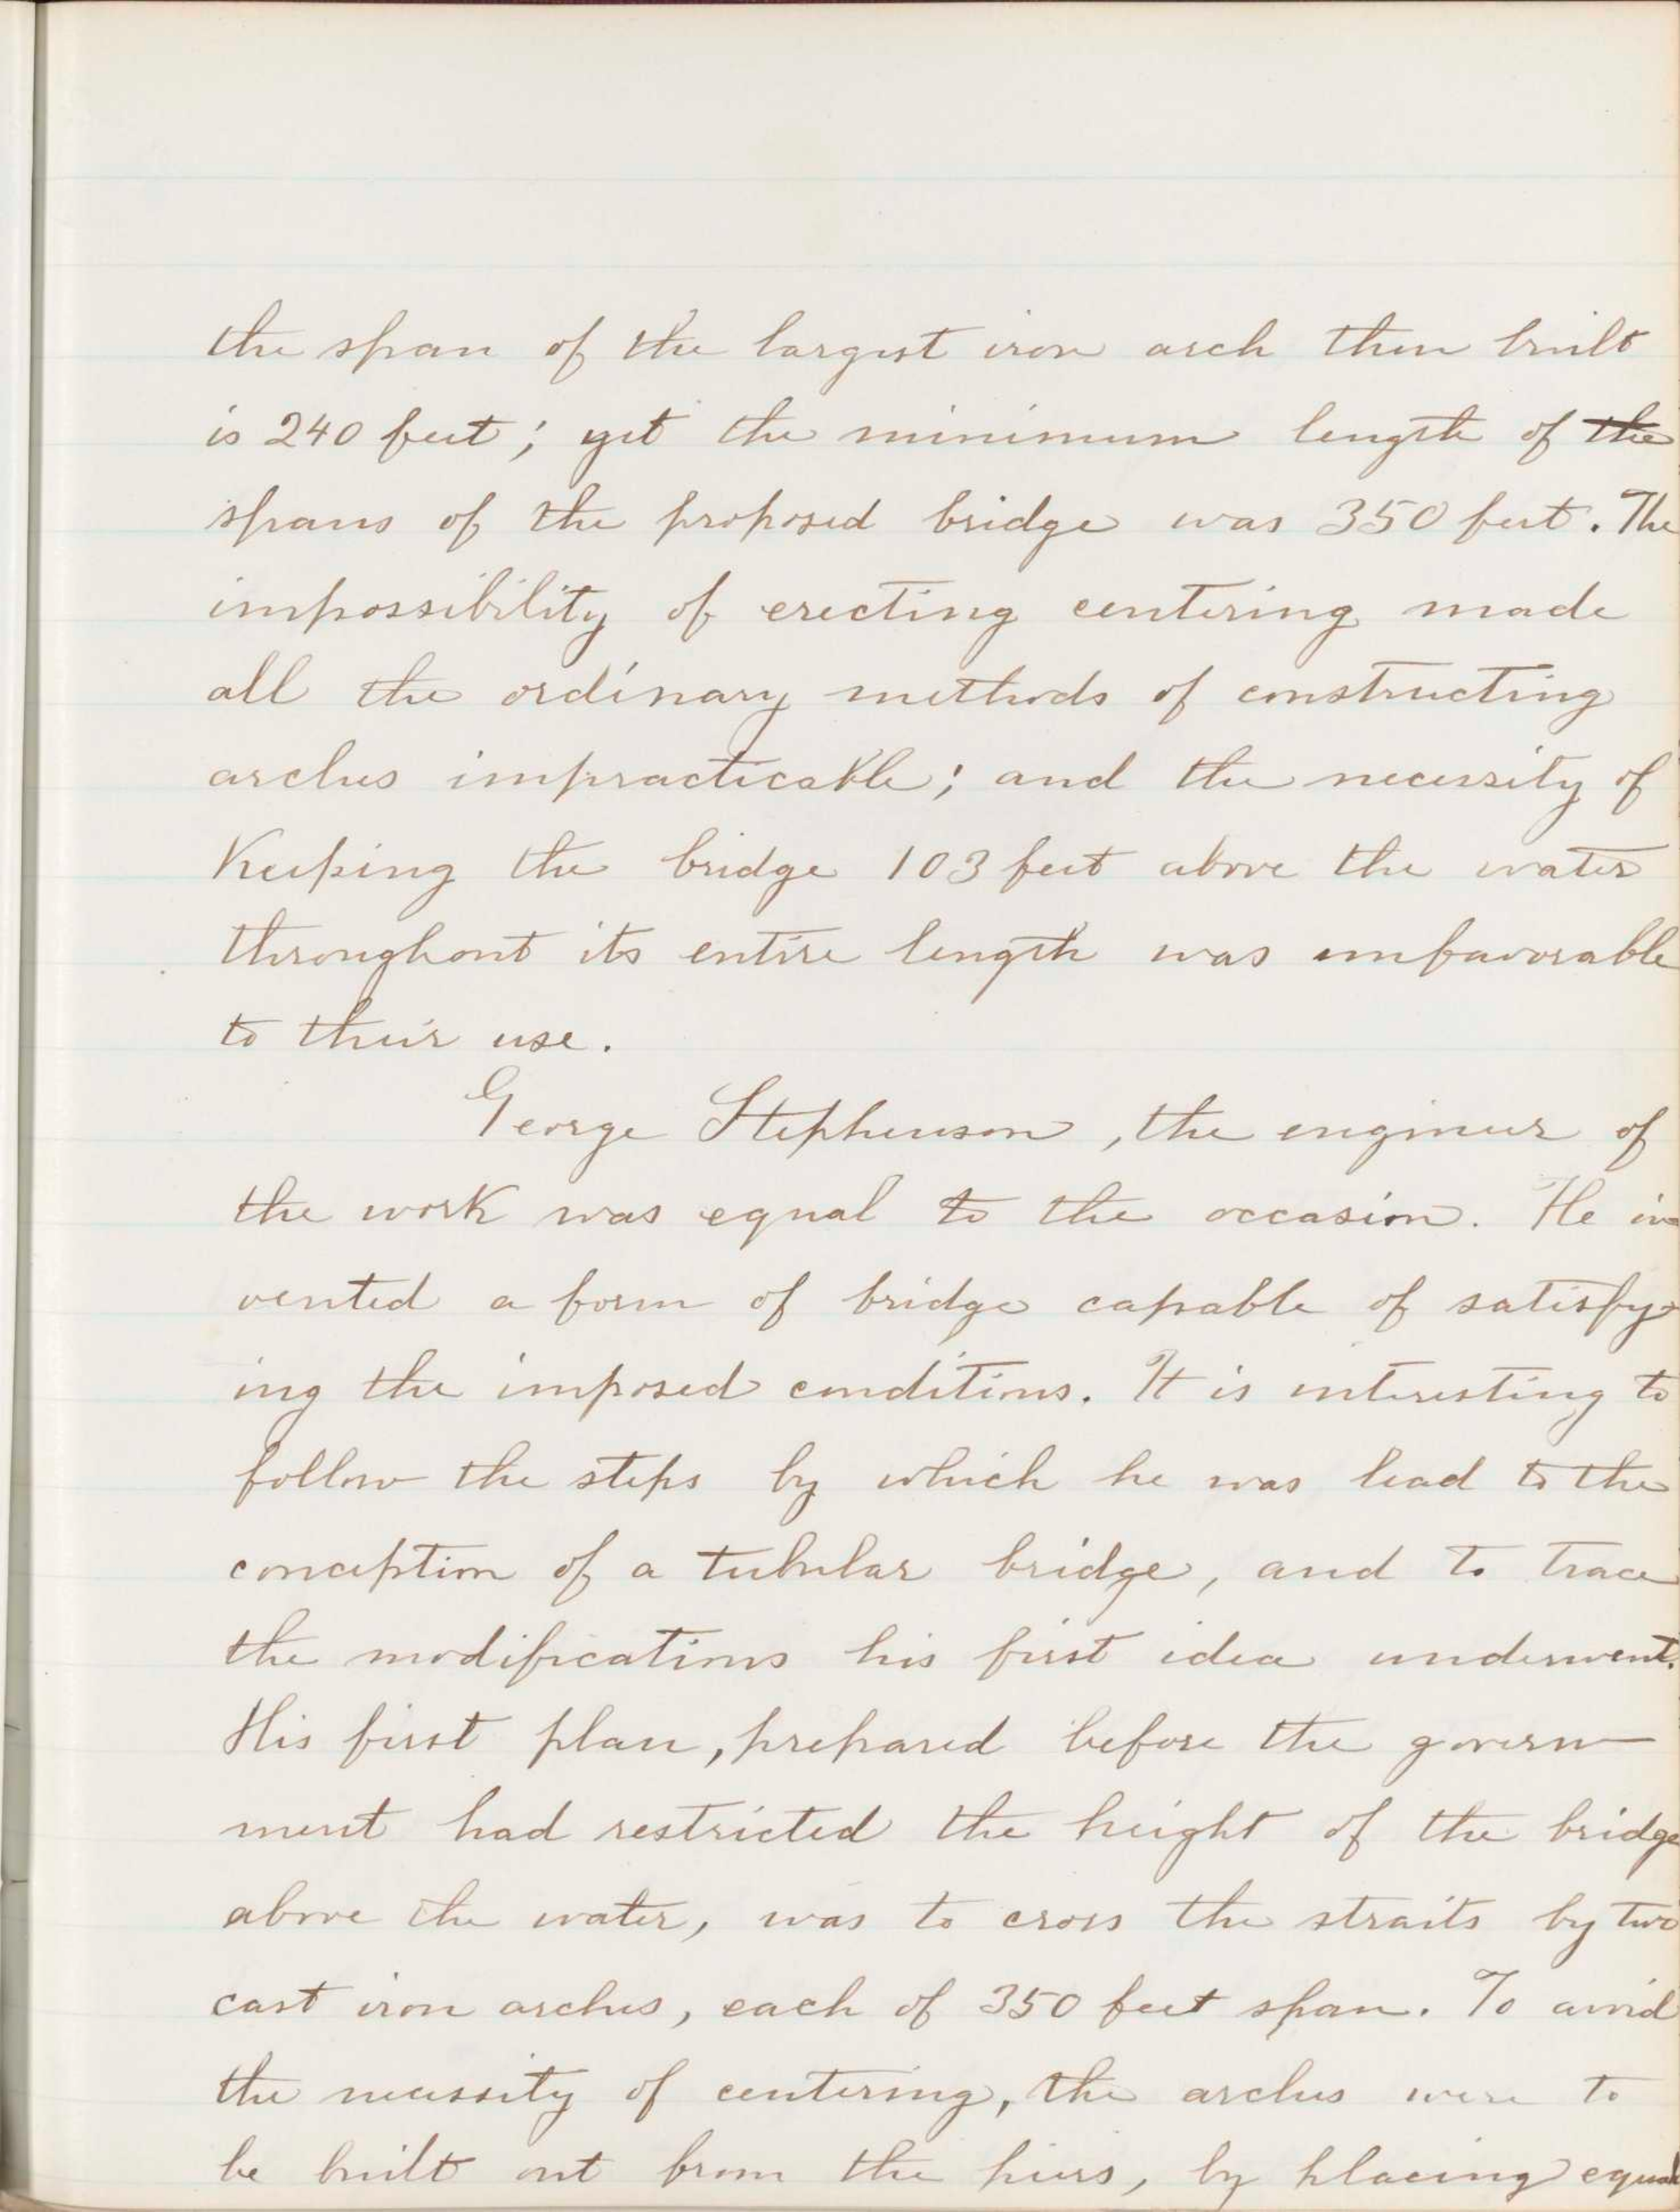 the span of the largest iron arch then built
is 240 feet; yet the minimum length of the
spans of the proposed bridge was 350 feet. The
impossibility of erecting centering made
all the ordinary methods of constructing
arches impracticable; and the necessity of
Keeping the bridge 103 feet above the water
throughout its entire length was unfavorable
to their use.
George Stephenson, the engineer of
the work was equal to the occasion. He in-
vented a form of bridge capable of satisfy-
ing the imposed conditions. It is interesting to
follow the steps by which he was lead to the
conception of a tubular bridge, and to trace
the modifications his first idea underwent.
His first plan, prepared before the govern-
ment had restricted the height of the bridge
above the water, was to cross the straits by two
cast iron arches, each of 350 feet span. To avoid
the necessity of centering, the arches were to
be built out from the piers, by placing equal